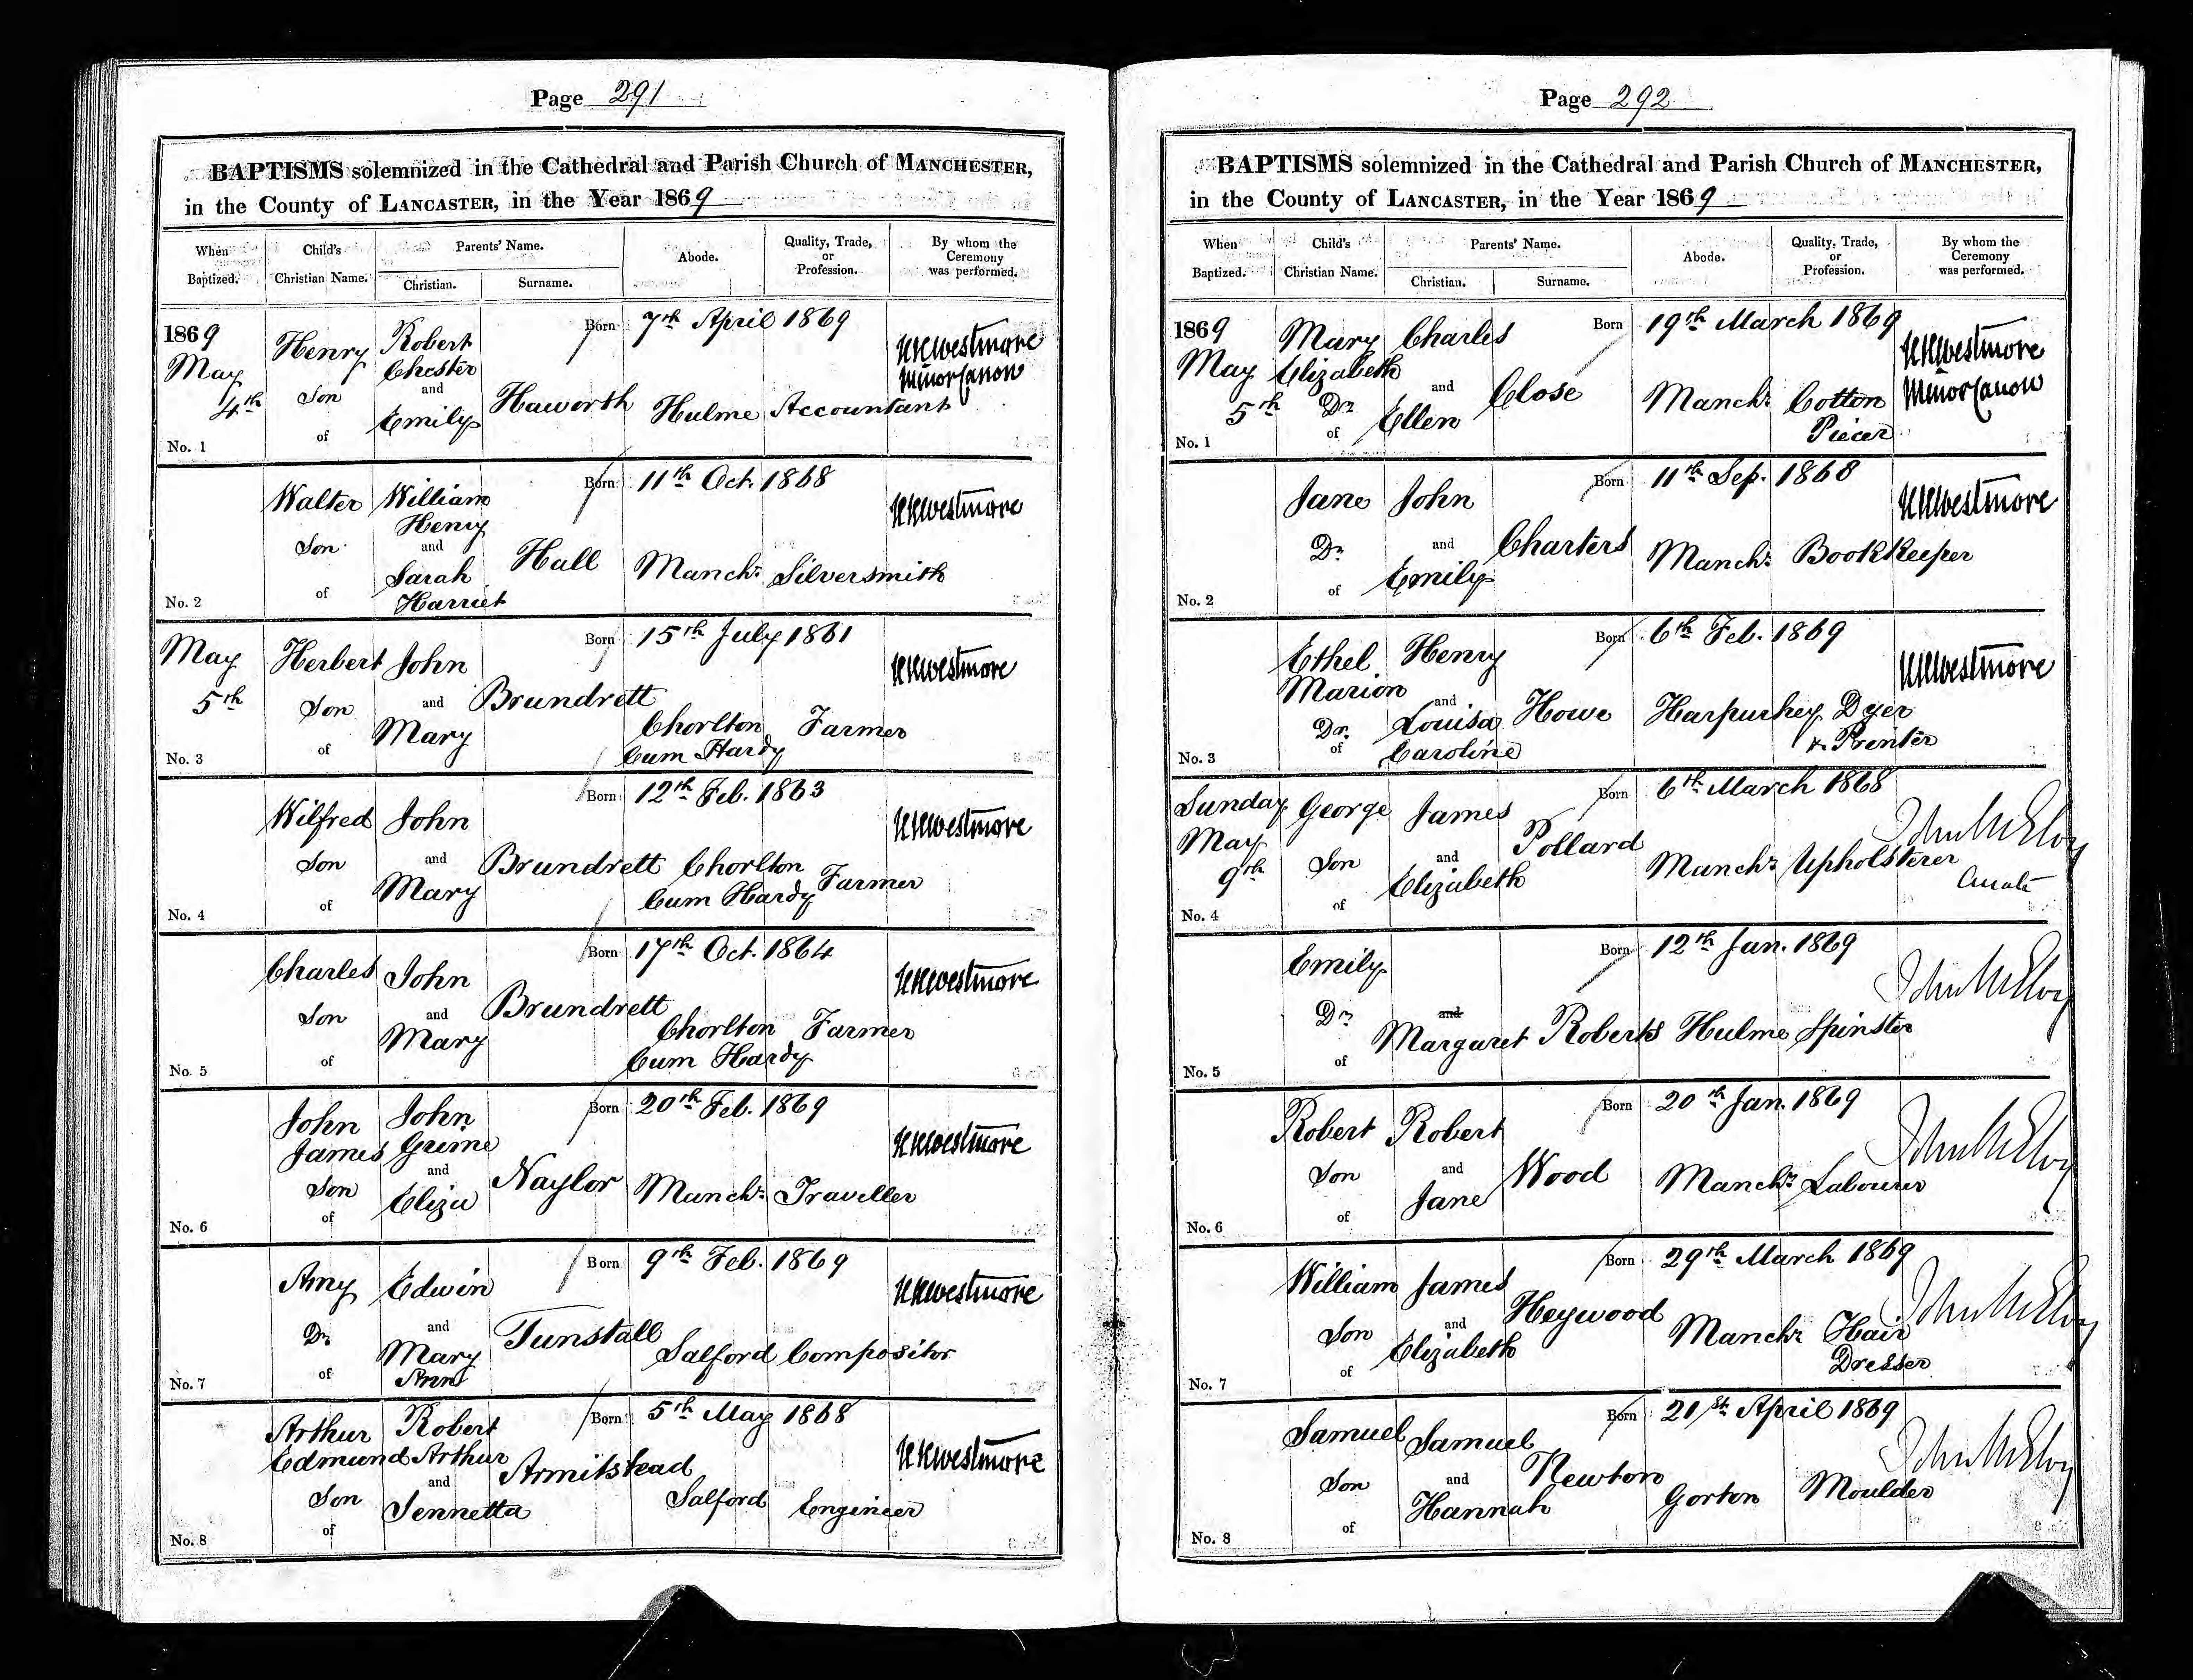 Page 291
BAPTISMS solemnized in the Cathedral and Parish Church of MANCHESTER,
in the County of LANCASTER, in the Year 1869
When Baptized.
Child's Christian Name.
Parents' Name.
Christian.
Surname.
Abode.
Quality, Trade, or Profession.
By whom the Ceremony was performed.
1869
May
4th
No. 1
Henry
Son
of
Robert
Chester
and
Emily
Haworth
Born 7th April 1869
Hulme
Accountant
Westmore
Minor Canon
No. 2
Walter
Son
of
William
Henry
and
Sarah
Harriet
Hall
Born 11th Oct. 1868
Manchr
Silversmith
Westmore
May
5th
No. 3
Herbert
Son
of
John
and
Mary
Brundrett
Born 15th July 1861
Chorlton
Cum Hardy
Farmer
Westmore
No. 4
Wilfred
Son
of
John
and
Mary
Brundrett
Born 12th Feb. 1863
Chorlton
Cum Hardy
Farmer
Westmore
No. 5
Charles
Son
of
John
and
Mary
Brundrett
Born 17th Oct. 1864
Chorlton
Cum Hardy
Farmer
Westmore
No. 6
John
James
Son
of
John
Grime
and
Eliza
Naylor
Born 20th Feb. 1869
Manchr
Traveller
Westmore
No. 7
Amy
Dr
of
Edwin
and
Mary
Ann
Tunstall
Born 9th Feb. 1869
Salford
Compositor
Westmore
No. 8
Arthur
Edmund
Son
of
Robert
Arthur
and
Jennetta
Armitstead
Born 5th May 1868
Salford
Engineer
Westmore
Page 292
BAPTISMS solemnized in the Cathedral and Parish Church of MANCHESTER,
in the County of LANCASTER, in the Year 1869
When Baptized.
Child's Christian Name.
Parents' Name.
Christian.
Surname.
Abode.
Quality, Trade, or Profession.
By whom the Ceremony was performed.
1869
May
5th
No. 1
Mary
Elizabeth
Dr
of
Charles
and
Ellen
Close
Born 19th March 1869
Manchr
Cotton
Piecer
Westmore
Minor Canon
No. 2
Jane
Dr
of
John
and
Emily
Charters
Born 11th Sep. 1868
Manchr
Bookkeeper
Westmore
No. 3
Ethel
Marion
Dr.
of
Henry
and
Louisa
Caroline
Howe
Born 6th Feb. 1869
Harpurhey
Dyer
& Printer
Westmore
Sunday
May
9th
No. 4
George
Son
of
James
and
Elizabeth
Pollard
Born 6th March 1868
Manchr
Upholsterer
John McElroy
Curate
No. 5
Emily
Dr
of
and
Margaret
Roberts
Born 12th Jan. 1869
Hulme
Spinster
John McElroy
No. 6
Robert
Son
of
Robert
and
Jane
Wood
Born 20th Jan. 1869
Manchr
Labourer
John McElroy
No. 7
William
Son
of
James
and
Elizabeth
Heywood
Born 29th March 1869
Manchr
Hair
Dresser
John McElroy
No. 8
Samuel
Son
of
Samuel
and
Hannah
Newton
Born 21st April 1869
Gorton
Moulder
John McElroy